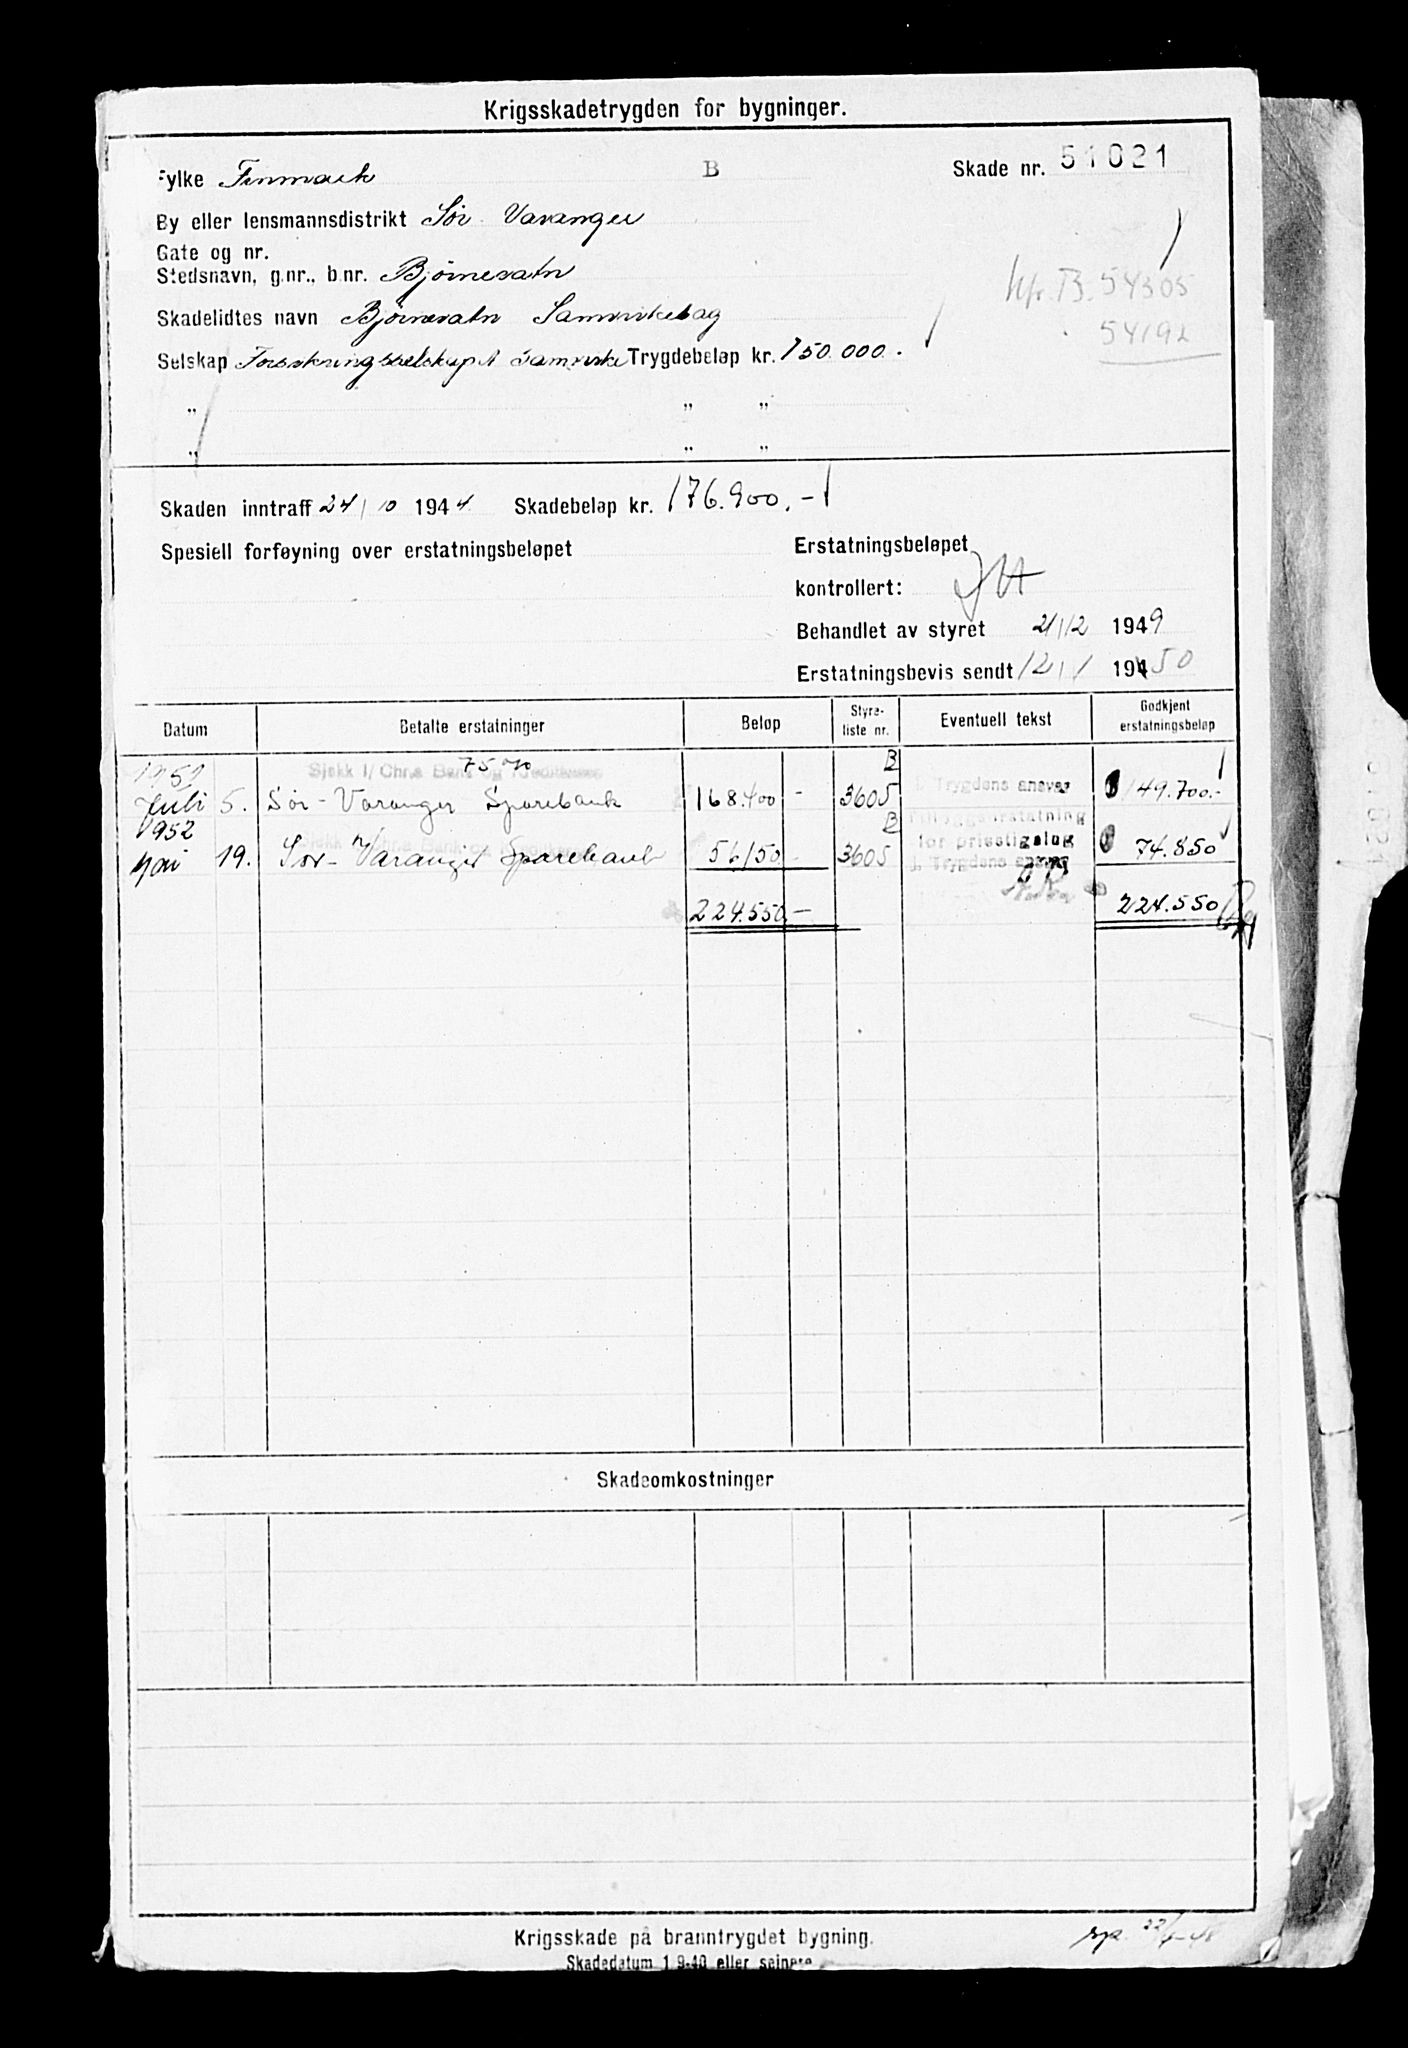 Krigsskadetrygden for bygninger.
Fylke Finmark B Skade nr. 51021
By eller lensmannsdistrikt Sør Varanger
Gate og nr.
Stedsnavn, g.nr., b.nr. Bjørnevatn
Kfr. B. 54305
54192
Skadelidtes navn Bjørnevatn Samvirkelag
Selskap Forsikringsselskapet Samvirke Trygdebeløp kr. 150.000.-
" " "
" " "
Skaden inntraff 24/10 1944 Skadebeløp kr. 176.900.-
Spesiell forføyning over erstatningsbeløpet
Erstatningsbeløpet
kontrollert:
Behandlet av styret 21/12 1949
Erstatningsbevis sendt 12/1 1950
Datum Betalte erstatninger Beløp Styre-liste nr. Eventuell tekst Godkjent erstatningsbeløp
1951 Sjekk 1/ Chra Bank og Kreditkasse 75% B
Juli 5. Sør-Varanger Sparebank 168.400 - 3605 Trygdens ansvar 149.700.-
1952 B Tilleggserstatning
19. Sør-Varanger Sparebank 56150 - 3605 for prisstigning 74.850
f. Trygdens ansvar
224.550.- 224.550
Skadeomkostninger
Krigsskade på branntrygdet bygning.
Skadedatum 1.9.40 eller seinere